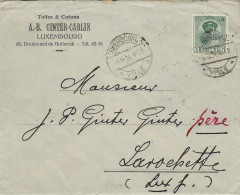 Toiles & Cotons
A.-B. GINTER-CARLIN
LUXEMBOURG
Boulevard de Hollerich - Tél.
Monsieur
J. P. Ginter Ginter père
Larochette
(Luxg.)